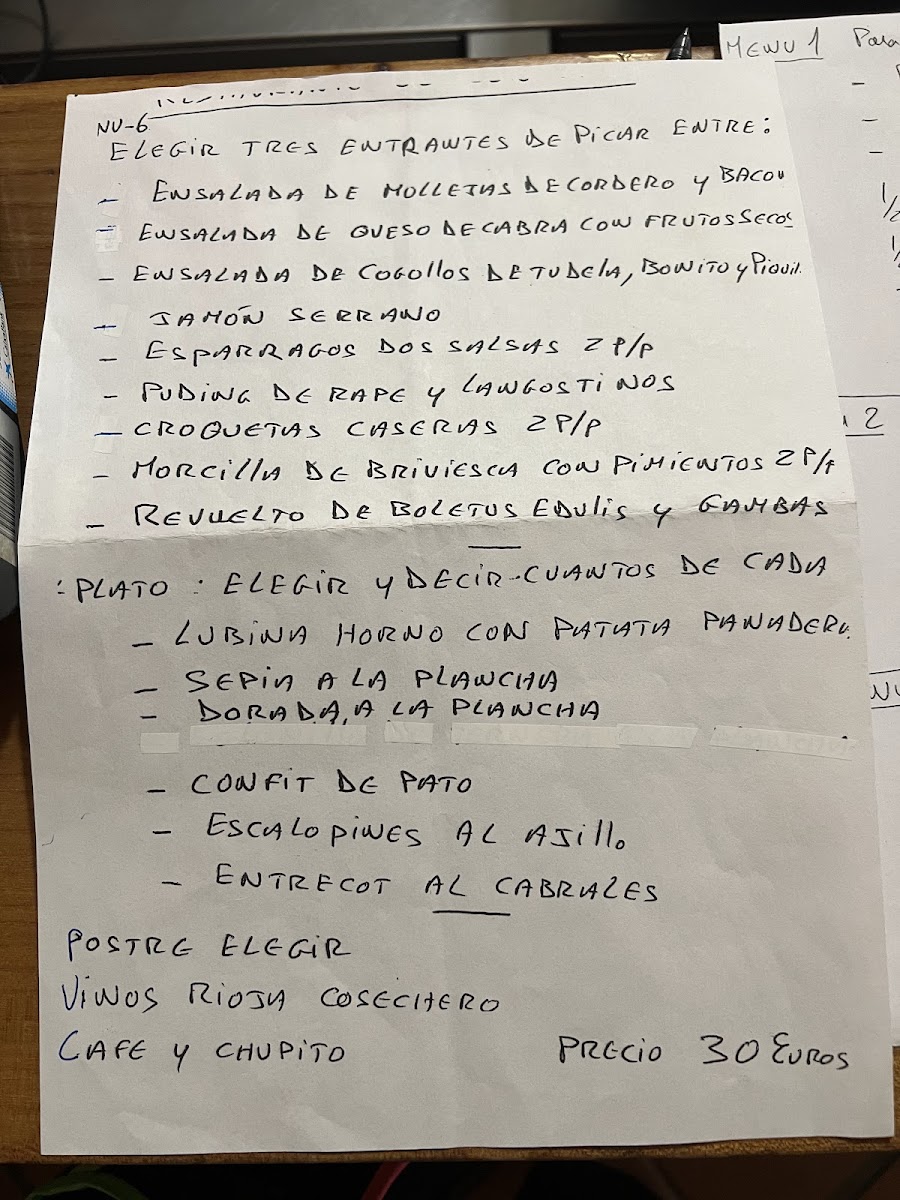 NU-6
ELEGIR TRES ENTRANTES DE PICAR ENTRE:
- ENSALADA DE MOLLEJAS DE CORDERO Y BACON
- ENSALADA DE QUESO DE CABRA CON FRUTOS SECOS
- ENSALADA DE COGOLLOS DE TUDELA, BONITO Y PIQUIL.
- JAMÓN SERRANO
- ESPARRAGOS DOS SALSAS 2 P/P
- PUDING DE RAPE Y LANGOSTINOS
- CROQUETAS CASERAS 2 P/P
- MORCILLA DE BRIVIESCA CON PIMIENTOS 2 P/P
- REVUELTO DE BOLETUS EDULIS Y GAMBAS
: PLATO : ELEGIR Y DECIR-CUANTOS DE CADA
- LUBINA HORNO CON PATATA PANADERA
- SEPIA A LA PLANCHA
- DORADA, A LA PLANCHA
- CONFIT DE PATO
- ESCALOPINES AL AJILLO
- ENTRECOT AL CABRALES
POSTRE ELEGIR
VINOS RIOJA COSECHERO
CAFE Y CHUPITO PRECIO 30 EUROS
MENU 1 Para
1/2
2